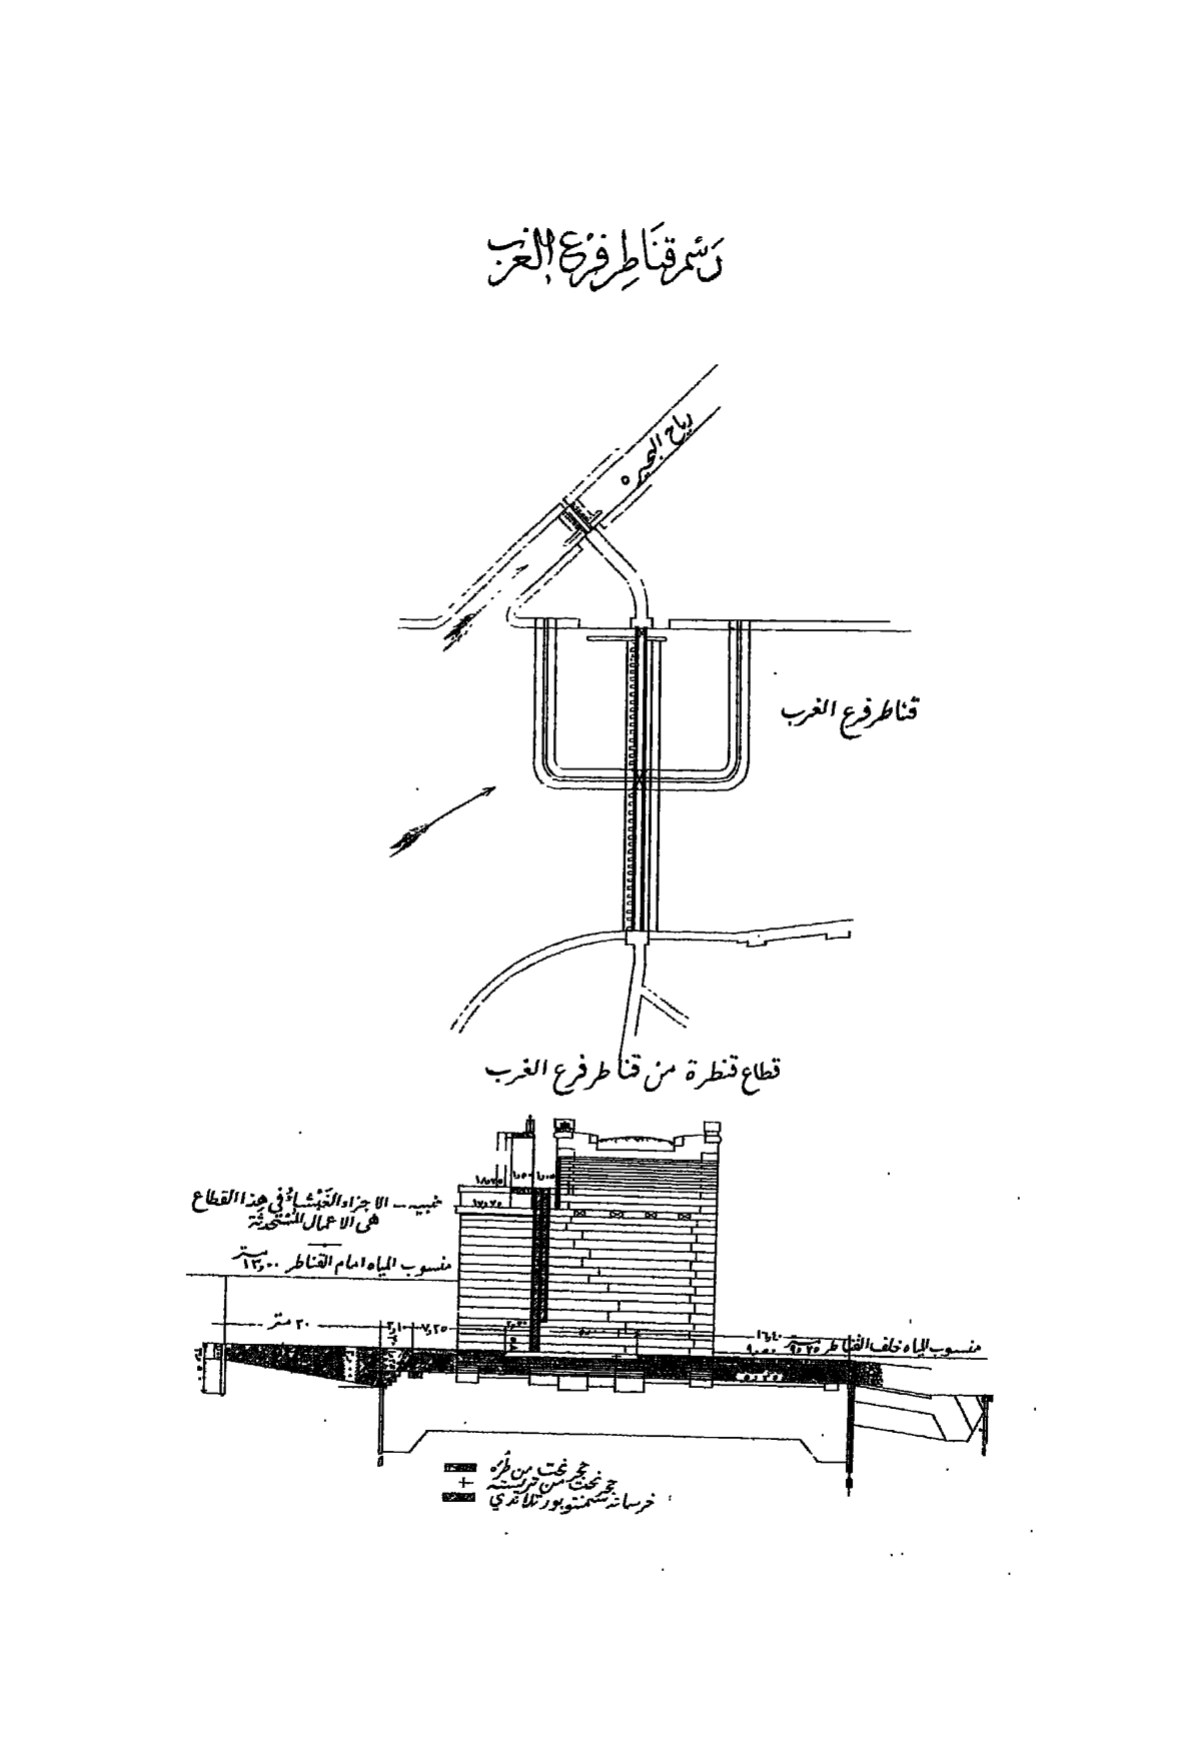 رَسْم قنَاطِر فرْع الغرب
رياح البحيره
قناطر فرع الغرب
قطاع قنطرة من قناطر فرع الغرب
١٨٫٢٥
١٫٥٠
تنبيه ــ الاجزاء الغَبْشَاءُ في هذا القطاع
هى الاعمال المُسْتحدثَة
١٧٫٢٥
منسوب المياه امام القناطر ١٣٫٠٠ متر
٢٠ متر
٣٫١٠
٧٫٢٥
١٦٫٤٠
منسوب المياه خلف القناطر
٩٫٥٠
حجر نحت من طُرَه
حجر نحت من تريسته
خرسانة سمنتو بورتلاندي